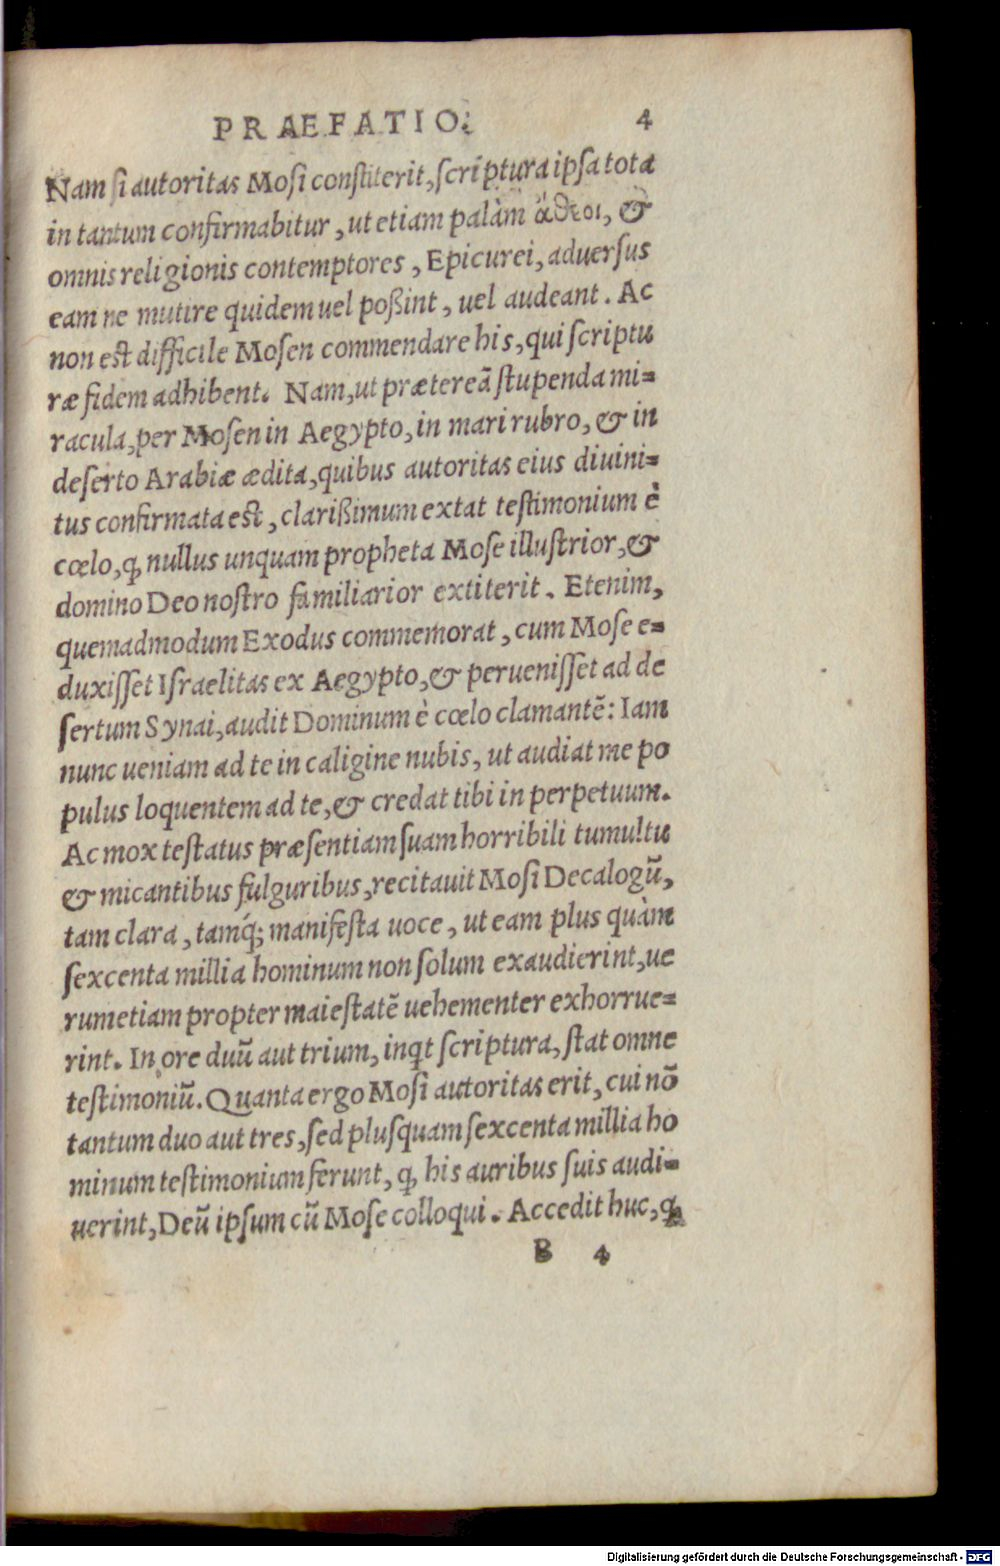 PRAEFATIO. 4
Nam si autoritas Mosi constiterit, scriptura ipsa tota
in tantum confirmabitur, ut etiam palàm ἄθεοι, &
omnis religionis contemptores, Epicurei, aduersus
eam ne mutire quidem uel poßint, uel audeant. Ac
non est difficile Mosen commendare his, qui scriptu
ræ fidem adhibent. Nam, ut prætereā stupenda mi=
racula, per Mosen in Aegypto, in mari rubro, & in
deserto Arabiæ ædita, quibus autoritas eius diuini=
tus confirmata est, clarißimum extat testimonium è
cœlo, ꝙ nullus unquam propheta Mose illustrior, &
domino Deo nostro familiarior extiterit. Etenim,
quemadmodum Exodus commemorat, cum Mose e=
duxisset Israelitas ex Aegypto, & peruenisset ad de
sertum Synai, audit Dominum è cœlo clamantẽ: Iam
nunc ueniam ad te in caligine nubis, ut audiat me po
pulus loquentem ad te, & credat tibi in perpetuum.
Ac mox testatus præsentiam suam horribili tumultu
& micantibus fulguribus, recitauit Mosi Decalogũ,
tam clara, tamq́; manifesta uoce, ut eam plus quàm
sexcenta millia hominum non solum exaudierint, ue
rum etiam propter maiestatẽ uehementer exhorrue=
rint. In ore duũ aut trium, inqt scriptura, stat omne
testimoniũ. Quanta ergo Mosi autoritas erit, cui nõ
tantum duo aut tres, sed plusquam sexcenta millia ho
minum testimonium ferunt, ꝙ his auribus suis audi=
uerint, Deũ ipsum cũ Mose colloqui. Accedit huc, ꝙ
B 4
Digitalisierung gefördert durch die Deutsche Forschungsgemeinschaft - DFG